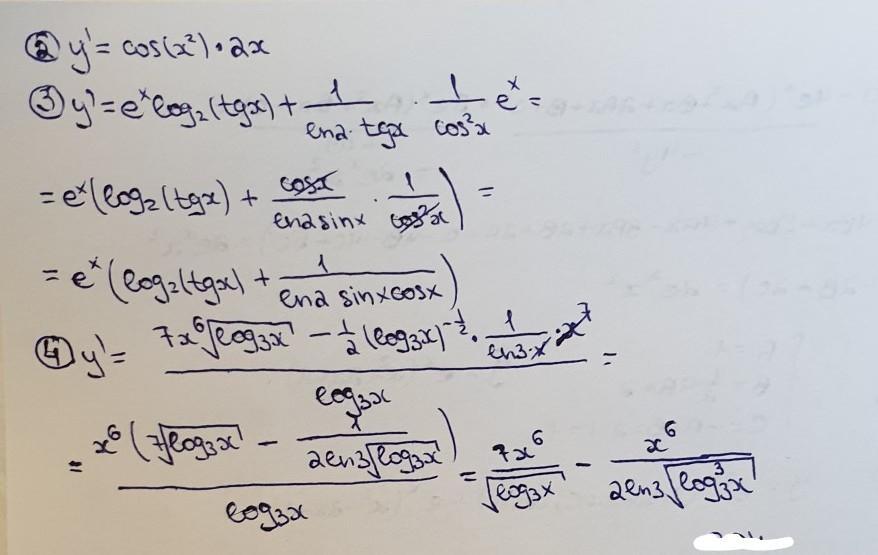 ② y' = cos(x²) · 2x
③ y' = eˣ log₂(tgx) + 1/(ln2 · tgx) · 1/(cos²x) eˣ =
= eˣ(log₂(tgx) + cosx/(ln2 sinx) · 1/(cos²x)) =
= eˣ(log₂(tgx) + 1/(ln2 sinxcosx))
④ y' = (7x⁶√(log₃x) − ½(log₃x)^(-½) · 1/(ln3·x) · x⁷)/(log₃x) =
= x⁶(7√(log₃x) − 1/(2ln3√(log₃x)))/(log₃x) = 7x⁶/√(log₃x) − x⁶/(2ln3√(log₃³x))